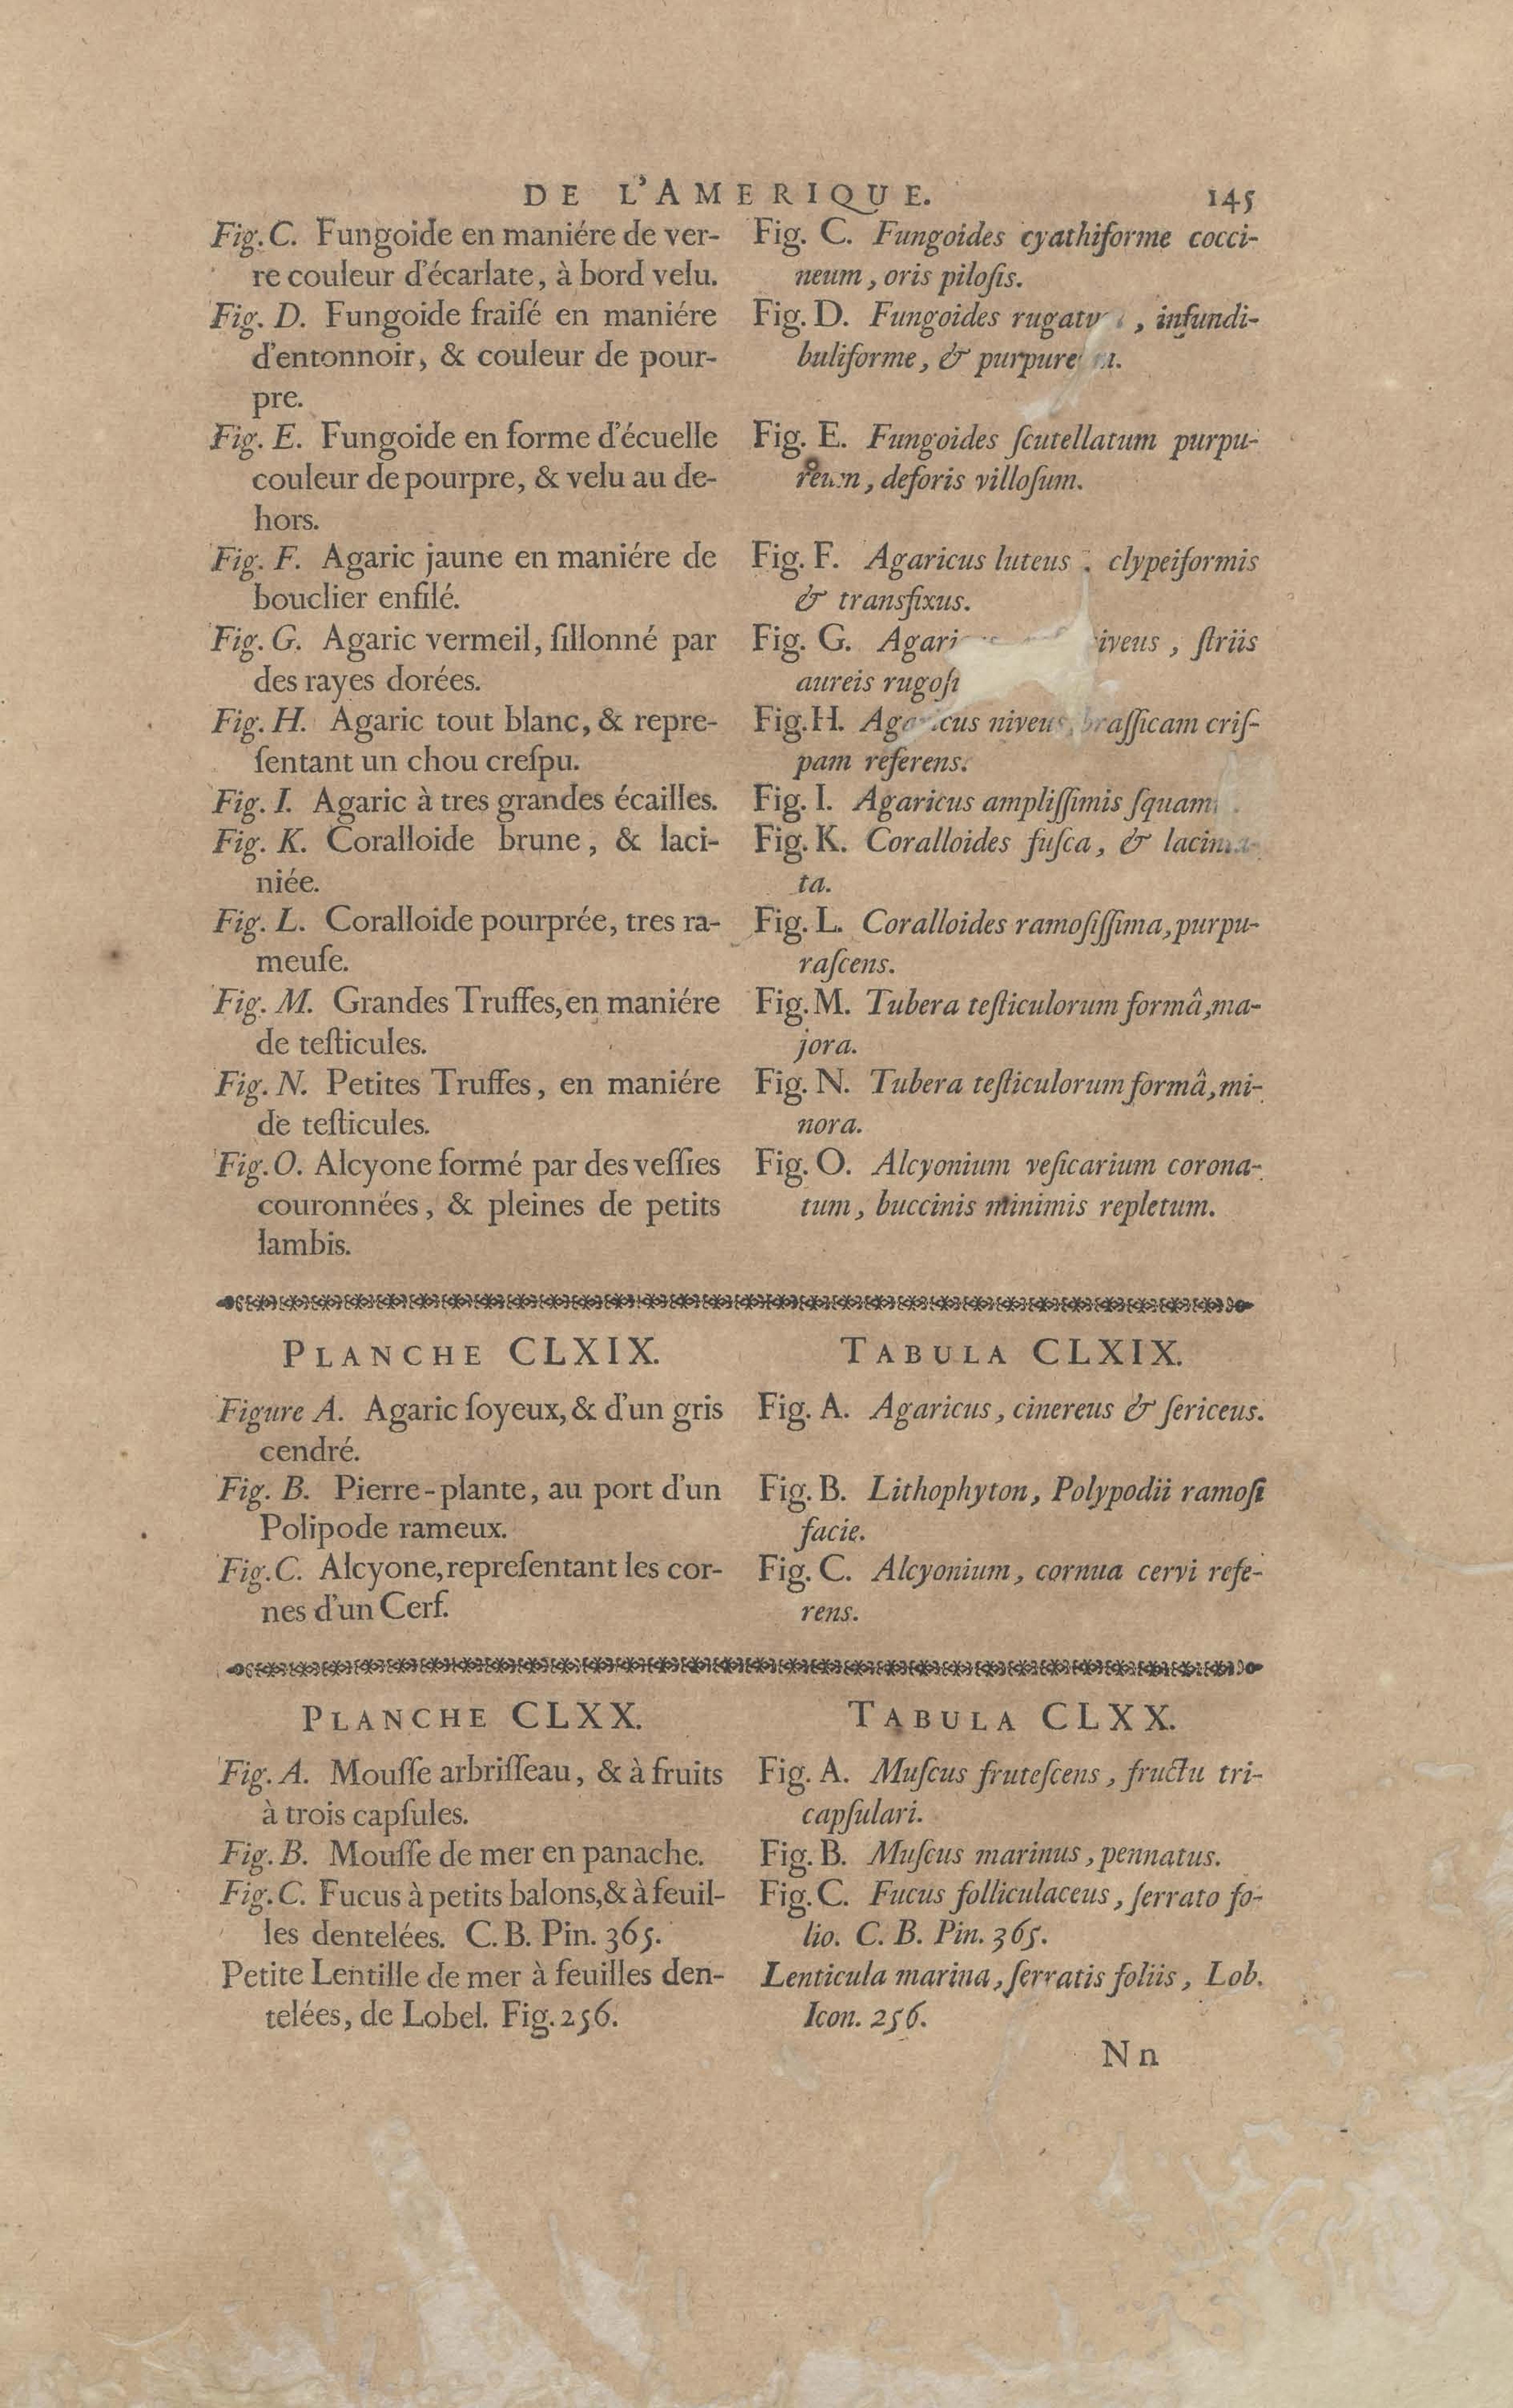 DE L'AMERIQUE. 145
Fig. C. Fungoide en maniére de ver-
re couleur d'écarlate, à bord velu.
Fig. D. Fungoide fraiſé en maniére
d'entonnoir, & couleur de pour-
pre.
Fig. E. Fungoide en forme d'écuelle
couleur de pourpre, & velu au de-
hors.
Fig. F. Agaric jaune en maniére de
bouclier enfilé.
Fig. G. Agaric vermeil, ſillonné par
des rayes dorées.
Fig. H. Agaric tout blanc, & repre-
ſentant un chou creſpu.
Fig. I. Agaric à tres grandes écailles.
Fig. K. Coralloide brune, & laci-
niée.
Fig. L. Coralloide pourprée, tres ra-
meuſe.
Fig. M. Grandes Truffes, en maniére
de teſticules.
Fig. N. Petites Truffes, en maniére
de teſticules.
Fig. O. Alcyone formé par des veſſies
couronnées, & pleines de petits
lambis.
Fig. C. Fungoides cyathiforme cocci-
neum, oris piloſis.
Fig. D. Fungoides , infundi-
buliforme, &
Fig. E. Fungoides ſcutellatum purpu-
reum, deforis villoſum.
Fig. F. Agaricus luteus clypeiformis
& transfixus.
Fig. G. , ſtriis
aureis
Fig. H. Agaricus niveus, braſſicam criſ-
pam referens.
Fig. I. Agaricus ampliſſimis
Fig. K. Coralloides fuſca, & lacinia-
ta.
Fig. L. Coralloides ramoſiſſima, purpu-
raſcens.
Fig. M. Tubera teſticulorum formâ, ma-
jora.
Fig. N. Tubera teſticulorum formâ, mi-
nora.
Fig. O. Alcyonium veſicarium corona-
tum, buccinis minimis repletum.
PLANCHE CLXIX.
Figure A. Agaric ſoyeux, & d'un gris
cendré.
Fig. B. Pierre-plante, au port d'un
Polipode rameux.
Fig. C. Alcyone, repreſentant les cor-
nes d'un Cerf.
TABULA CLXIX.
Fig. A. Agaricus, cinereus & ſericeus.
Fig. B. Lithophyton, Polypodii ramoſi
facie.
Fig. C. Alcyonium, cornua cervi refe-
rens.
PLANCHE CLXX.
Fig. A. Mouſſe arbriſſeau, & à fruits
à trois capſules.
Fig. B. Mouſſe de mer en panache.
Fig. C. Fucus à petits balons, & à feuil-
les dentelées. C. B. Pin. 365.
Petite Lentille de mer à feuilles den-
telées, de Lobel. Fig. 256.
TABULA CLXX.
Fig. A. Muſcus fruteſcens, fructu tri-
capſulari.
Fig. B. Muſcus marinus, pennatus.
Fig. C. Fucus folliculaceus, ſerrato fo-
lio. C. B. Pin. 365.
Lenticula marina, ſerratis foliis, Lob.
Icon. 256.
Nn